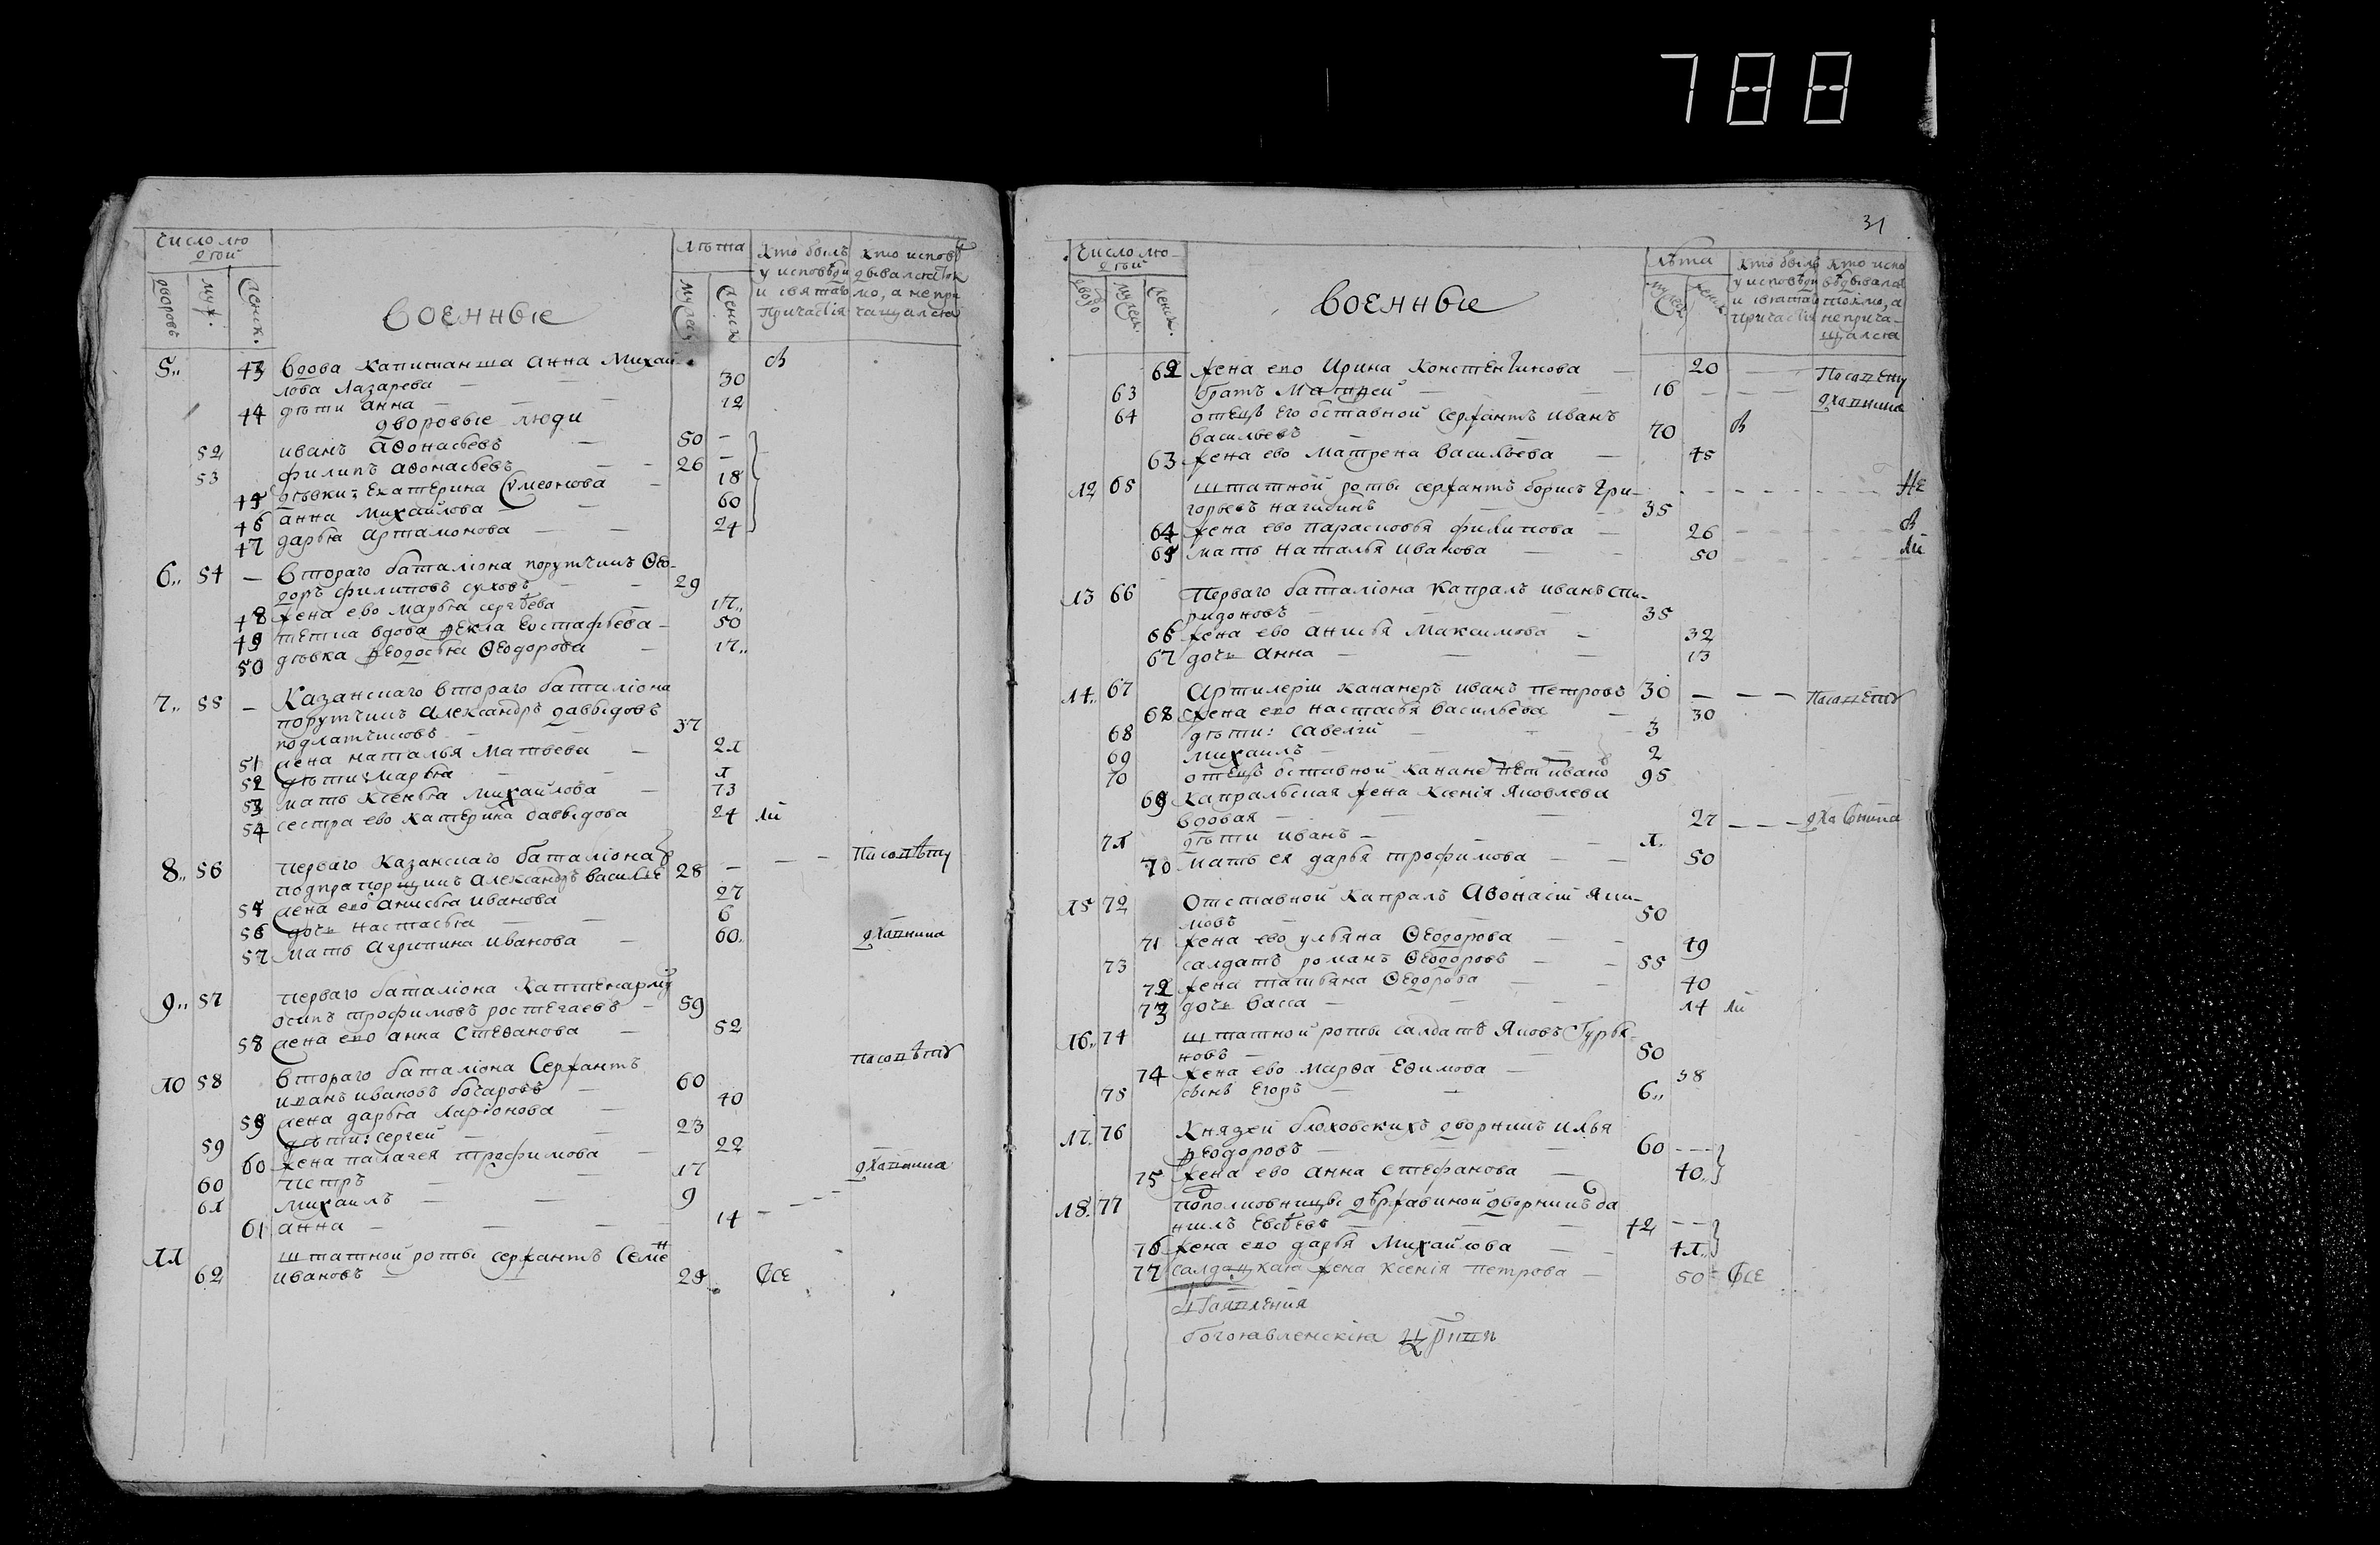 788
число лю
дѣй
дворовъ
муж.
женск.
военные
лѣта
мужеск
женск
Кто былъ
у исповѣди
и святаго
причастiя
Кто исповѣ
дывался ток
мо, а непри
чащался
5.. 43 вдова капитанша анна Михаи
лова Лазарева — 30
44 дѣти анна — 12
дворовые люди
52 иванъ Аѳонасьевъ — 50 —
53 филипъ аѳонасьевъ — 26 —
45 дѣвки: Екатерина Сумеонова — 18
46 анна Михайлова — 60
47 дарья Артамонова — 24
6.. 54 — Втораго баталiона порутчикъ Ѳео-
доръ филиповъ суховъ — 29
48 жена ево марья сергѣева 17..
49 тетка вдова фекла Еостафьева — 50
50 дѣвка феодосья Ѳеодорова — 17..
7.. 55 — Казанскаго втораго баталiона
порутчикъ Александръ давыдовъ
подлатчиковъ — 37
51 жена наталья Матвеева — 21
52 дѣти: Марья — 1
53 мать Ксенья михайлова — 73
54 сестра ево катерина давыдова 24 ли
8.. 56 перваго Казанскаго баталiона
подпрапорщикъ Александръ василье 28 — — — По сопѣту
55 жена ево анисья иванова 27
56 дочь настасья — 6
57 мать Агрипина иванова — 60..
9.. 57 перваго баталiона Каптенармус
осипъ трофимовъ ростегаевъ — 59
58 жена ево анна Стеѳанова — 52
10 58 втораго баталiона Сержантъ
иванъ ивановъ бочаровъ — 60
59 жена дарья Ларiонова — 40
59 дѣти: сергей — 23
60 жена палагея трофимова — 22
60 петръ — 17
61 михаилъ — 9
61 анна — 14
11 штатной роты сержантъ Семе
62 ивановъ — 29. все
31
Число лю-
дѣй
муческ.
женск.
военные
лѣта
кто былъ
у исповѣди
и святаго
причастiя
кто испо
вѣдывалса
токмо, а
неприча-
щался
62 жена ево Ирина Константинова — 20
63 братъ Матфей — 16
64 отецъ его оставной сержантъ иванъ
васильевъ — 70
63 жена ево матрена васильева — 45
12 65 штатной роты сержантъ борисъ Гри- Не
горьевъ нагибинъ 35
64 жена ево парасковья филипова — 26
65 мать наталья иванова — 50 ли
13 66 Перваго баталiона капралъ иванъ спи-
ридоновъ — 35
66 жена ево анисья Максимова — 32
67 дочь анна — 13
14.. 67 Артилерiи кананеръ иванъ петровъ 30 — —
68 жена ево настасья васильева — 30
68 дѣти: савелiй — 3
69 михаилъ — 2
70 отецъ оставной 95
69 капральская жена ксенiя яковлева
вдовая — 27 — — —
71 дѣти иванъ — 1.
70 мать ея дарья трофимова — 50
15 72 Отставной капралъ Аѳонасiй яки-
мовъ — 50
71 жена ево ульяна Ѳеодорова — 49
73 салдатъ романъ Ѳеодоровъ — 55
72 жена татьяна Ѳедорова — 40
73 дочь васса — 14 ли
16.. 74 штатной роты салдатъ яковъ Гурья-
новъ — 50
74 жена ево марѳа Еѳимова — 38
75 сынъ Егоръ — 6..
17. 76 Князей болховскихъ дворникъ илья
феодоровъ — 60 — —
75 жена ево анна стефанова — 40..
18. 77 пополковницы дѣржавиной дворникъ да
нилъ Евсѣевъ — 42 — —
76 жена ево дарья Михайлова — 41..
77 салдацкая жена ксенiя петрова — 50 = все
богоявленскiя